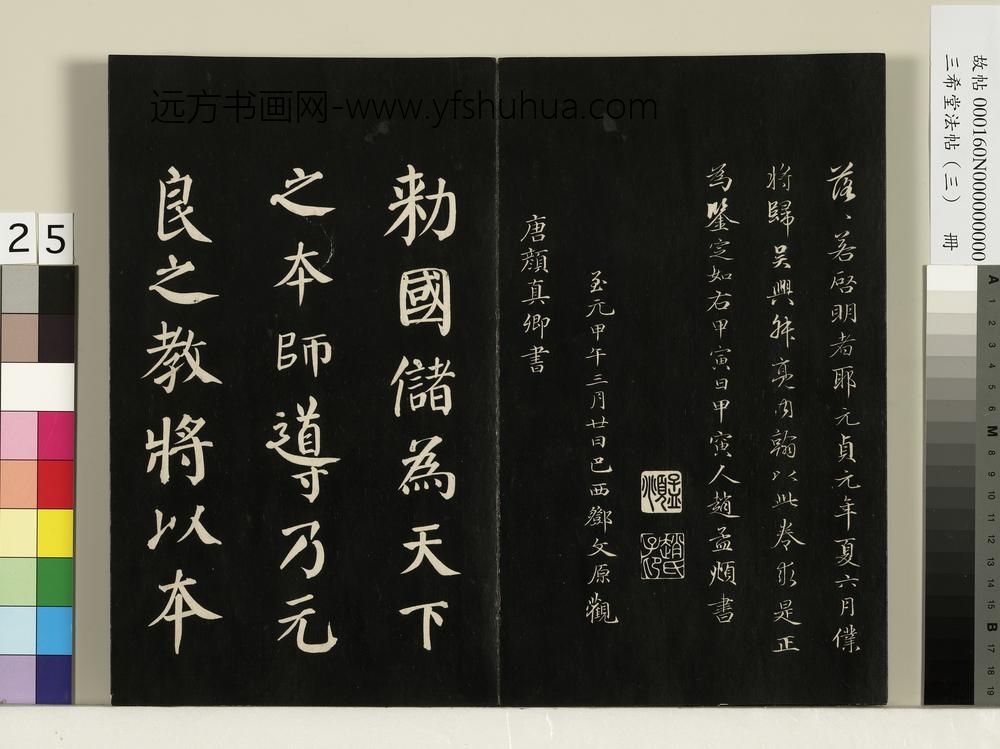 远方书画网-www.yfshuhua.com
落〻若啓明者耶元貞元年夏六月僕
將歸吳興舜舉內翰以此卷求是正
為鑒定如右甲寅日甲寅人趙孟頫書
孟頫
趙氏子昂
至元甲午三月廿日巴西鄧文原觀
唐顏真卿書
勑國儲為天下
之本師導乃元
良之教將以本
故帖 000160N000000000
三希堂法帖（三） 冊
25
A 1 2 3 4 5 6 M 8 9 10 11 12 13 14 15 B 17 18 19